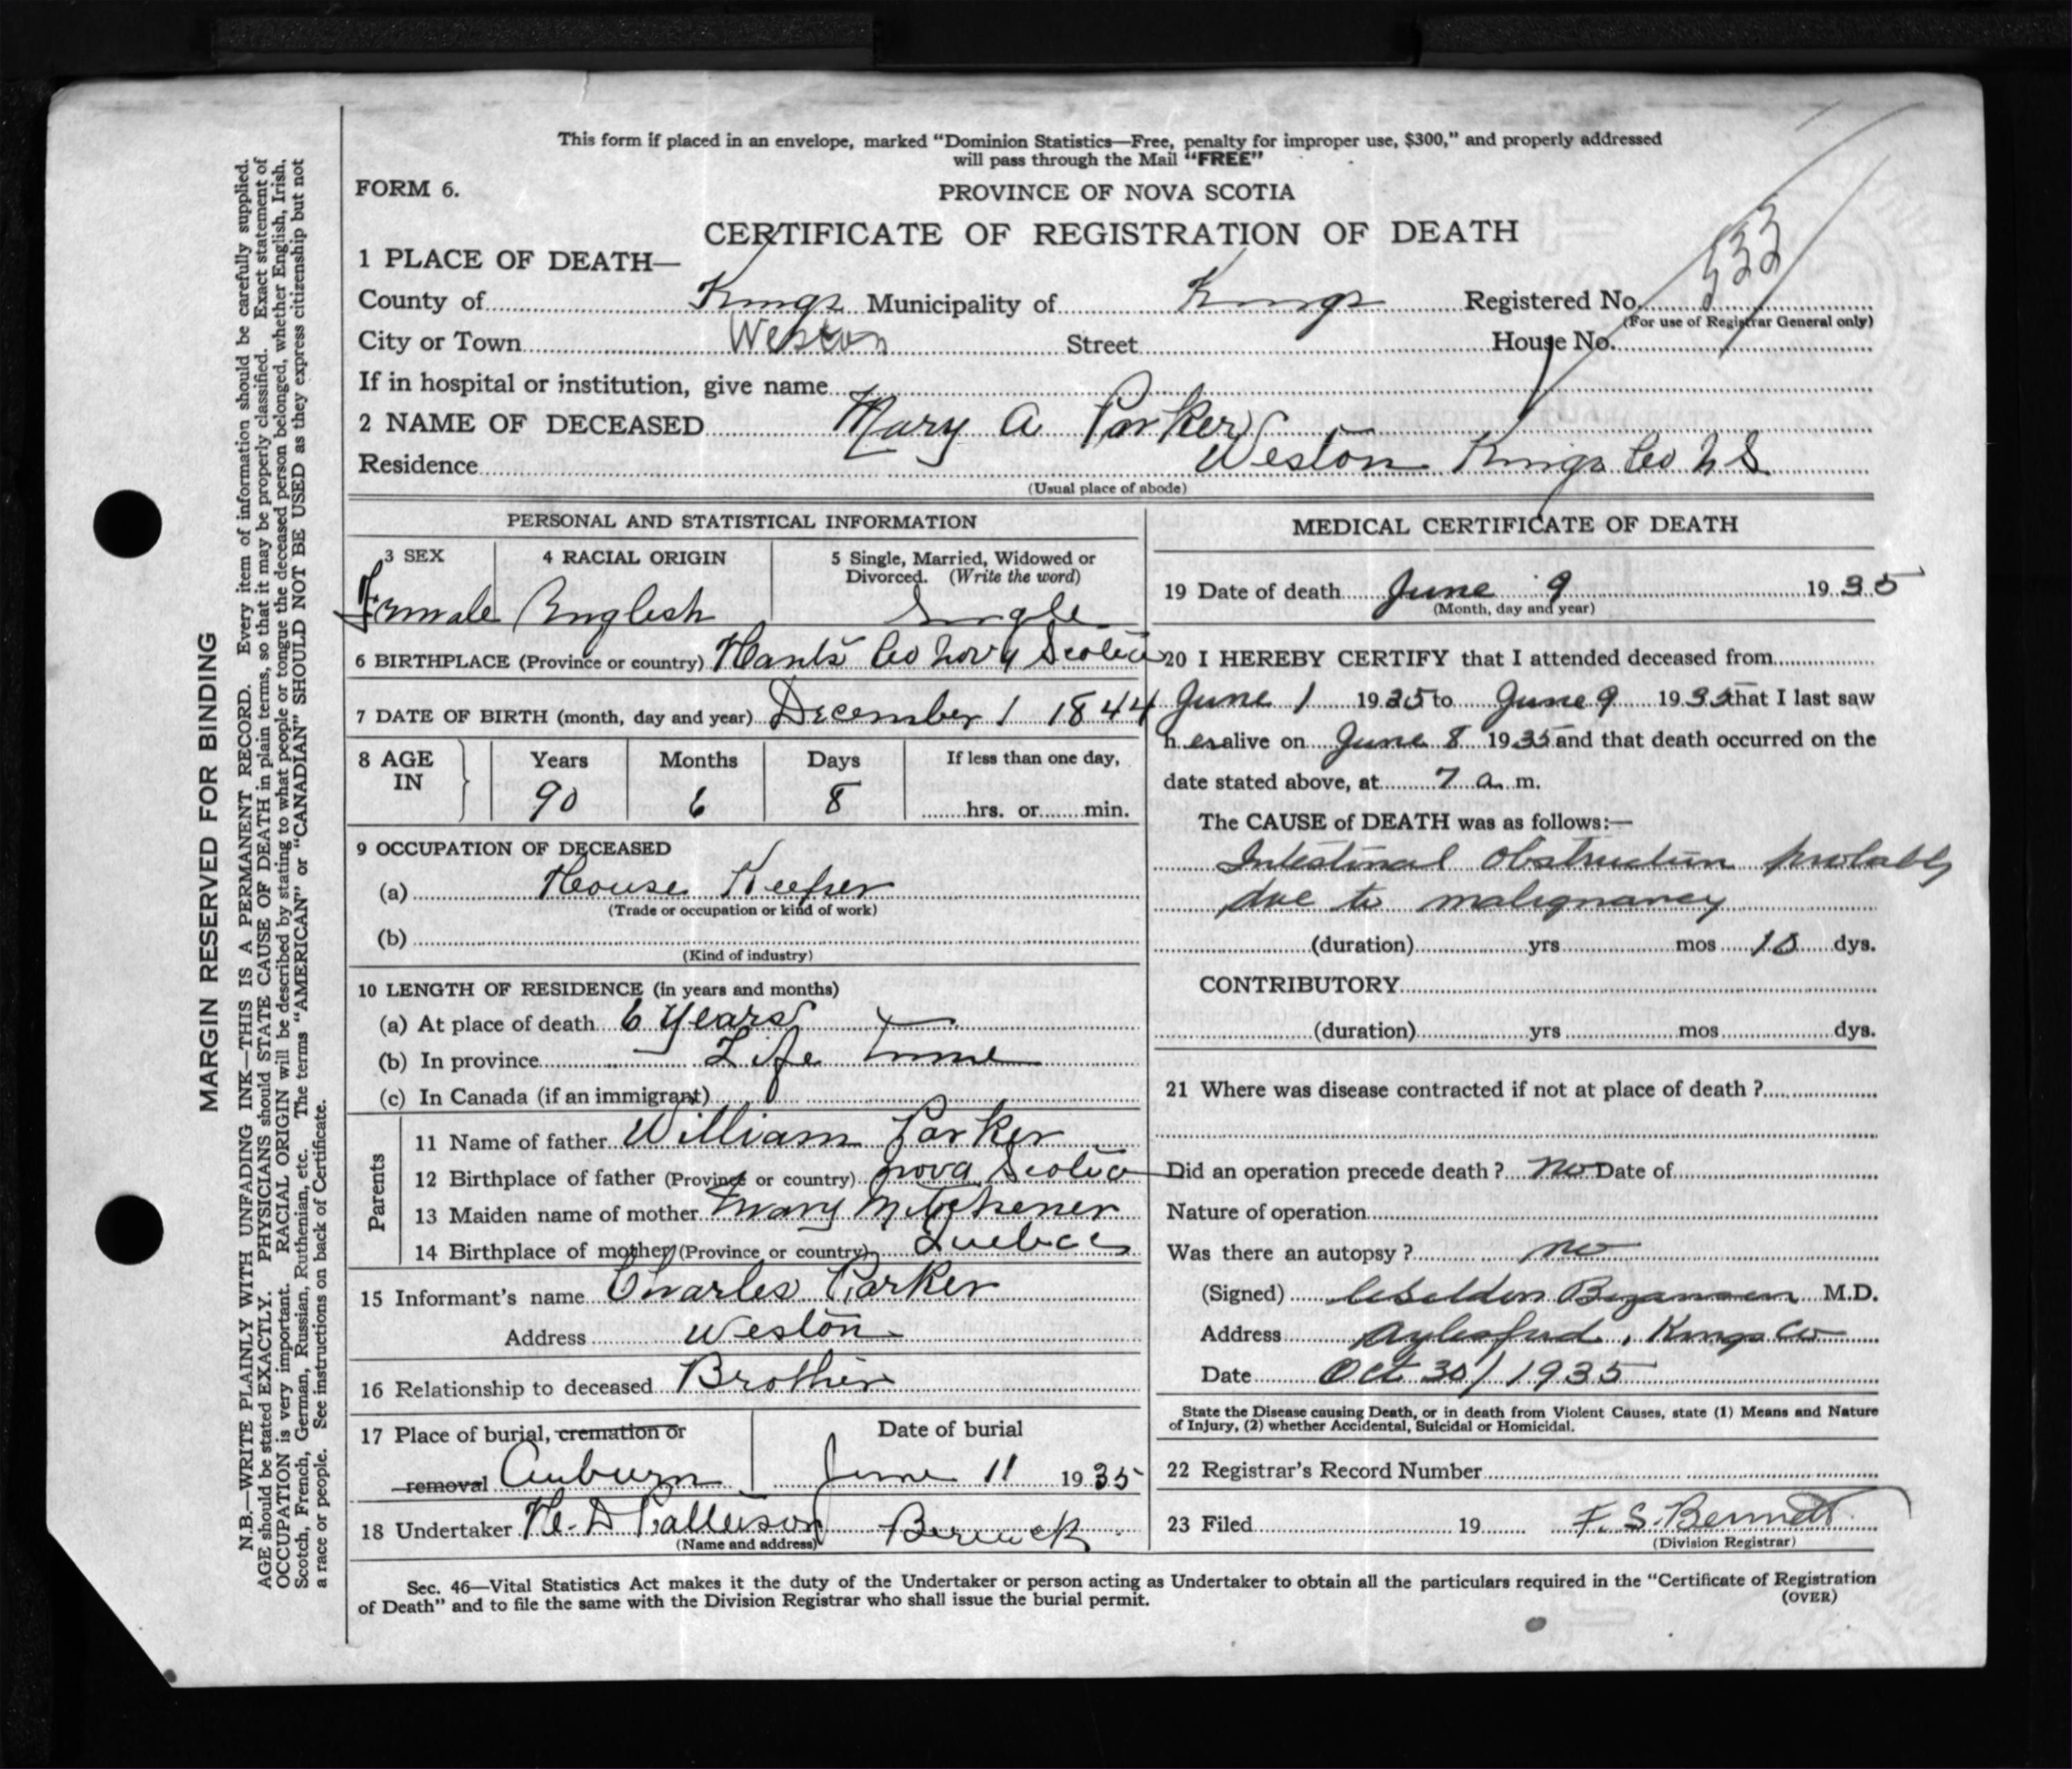 This form if placed in an envelope, marked "Dominion Statistics—Free, penalty for improper use, $300," and properly addressed
will pass through the Mail "FREE"
FORM 6.
PROVINCE OF NOVA SCOTIA
CERTIFICATE OF REGISTRATION OF DEATH
1 PLACE OF DEATH—
County of Kings Municipality of Kings Registered No. 533
(For use of Registrar General only)
City or Town Weston Street House No.
If in hospital or institution, give name
2 NAME OF DECEASED Mary A Parker
Residence Weston Kings Co N S
(Usual place of abode)
PERSONAL AND STATISTICAL INFORMATION
3 SEX 4 RACIAL ORIGIN 5 Single, Married, Widowed or
Divorced. (Write the word)
Female English Single
6 BIRTHPLACE (Province or country) Hants Co Nova Scotia
7 DATE OF BIRTH (month, day and year) December 1 1844
8 AGE IN Years Months Days If less than one day,
90 6 8 hrs. or min.
9 OCCUPATION OF DECEASED
(a) House Keeper
(Trade or occupation or kind of work)
(b)
(Kind of industry)
10 LENGTH OF RESIDENCE (in years and months)
(a) At place of death 6 Years
(b) In province Life Time
(c) In Canada (if an immigrant)
Parents
11 Name of father William Parker
12 Birthplace of father (Province or country) Nova Scotia
13 Maiden name of mother Mary Mitchener
14 Birthplace of mother (Province or country) Quebec
15 Informant's name Charles Parker
Address Weston
16 Relationship to deceased Brother
17 Place of burial, cremation or Date of burial
removal Auburn June 11 1935
18 Undertaker H. D Patterson Berwick
(Name and address)
MEDICAL CERTIFICATE OF DEATH
19 Date of death June 9 1935
(Month, day and year)
20 I HEREBY CERTIFY that I attended deceased from
June 1 1935 to June 9 1935 that I last saw
her alive on June 8 1935 and that death occurred on the
date stated above, at 7 a. m.
The CAUSE of DEATH was as follows:—
Intestinal Obstruction probably
due to malignancy
(duration) yrs mos 10 dys.
CONTRIBUTORY
(duration) yrs mos dys.
21 Where was disease contracted if not at place of death ?
Did an operation precede death ? no Date of
Nature of operation
Was there an autopsy ? no
(Signed) Bezanson M.D.
Address Aylesford, Kings Co
Date Oct 30/1935
State the Disease causing Death, or in death from Violent Causes, state (1) Means and Nature
of Injury, (2) whether Accidental, Suicidal or Homicidal.
22 Registrar's Record Number
23 Filed 19 F. S. Bennett
(Division Registrar)
Sec. 46—Vital Statistics Act makes it the duty of the Undertaker or person acting as Undertaker to obtain all the particulars required in the "Certificate of Registration
of Death" and to file the same with the Division Registrar who shall issue the burial permit.
(OVER)
MARGIN RESERVED FOR BINDING
N.B.—WRITE PLAINLY WITH UNFADING INK—THIS IS A PERMANENT RECORD. Every item of information should be carefully supplied.
AGE should be stated EXACTLY. PHYSICIANS should STATE CAUSE OF DEATH in plain terms, so that it may be properly classified. Exact statement of
OCCUPATION is very important. RACIAL ORIGIN will be described by stating to what people or tongue the deceased person belonged, whether English, Irish,
Scotch, French, German, Russian, Ruthenian, etc. The terms "AMERICAN" or "CANADIAN" SHOULD NOT BE USED as they express citizenship but not
a race or people. See instructions on back of Certificate.